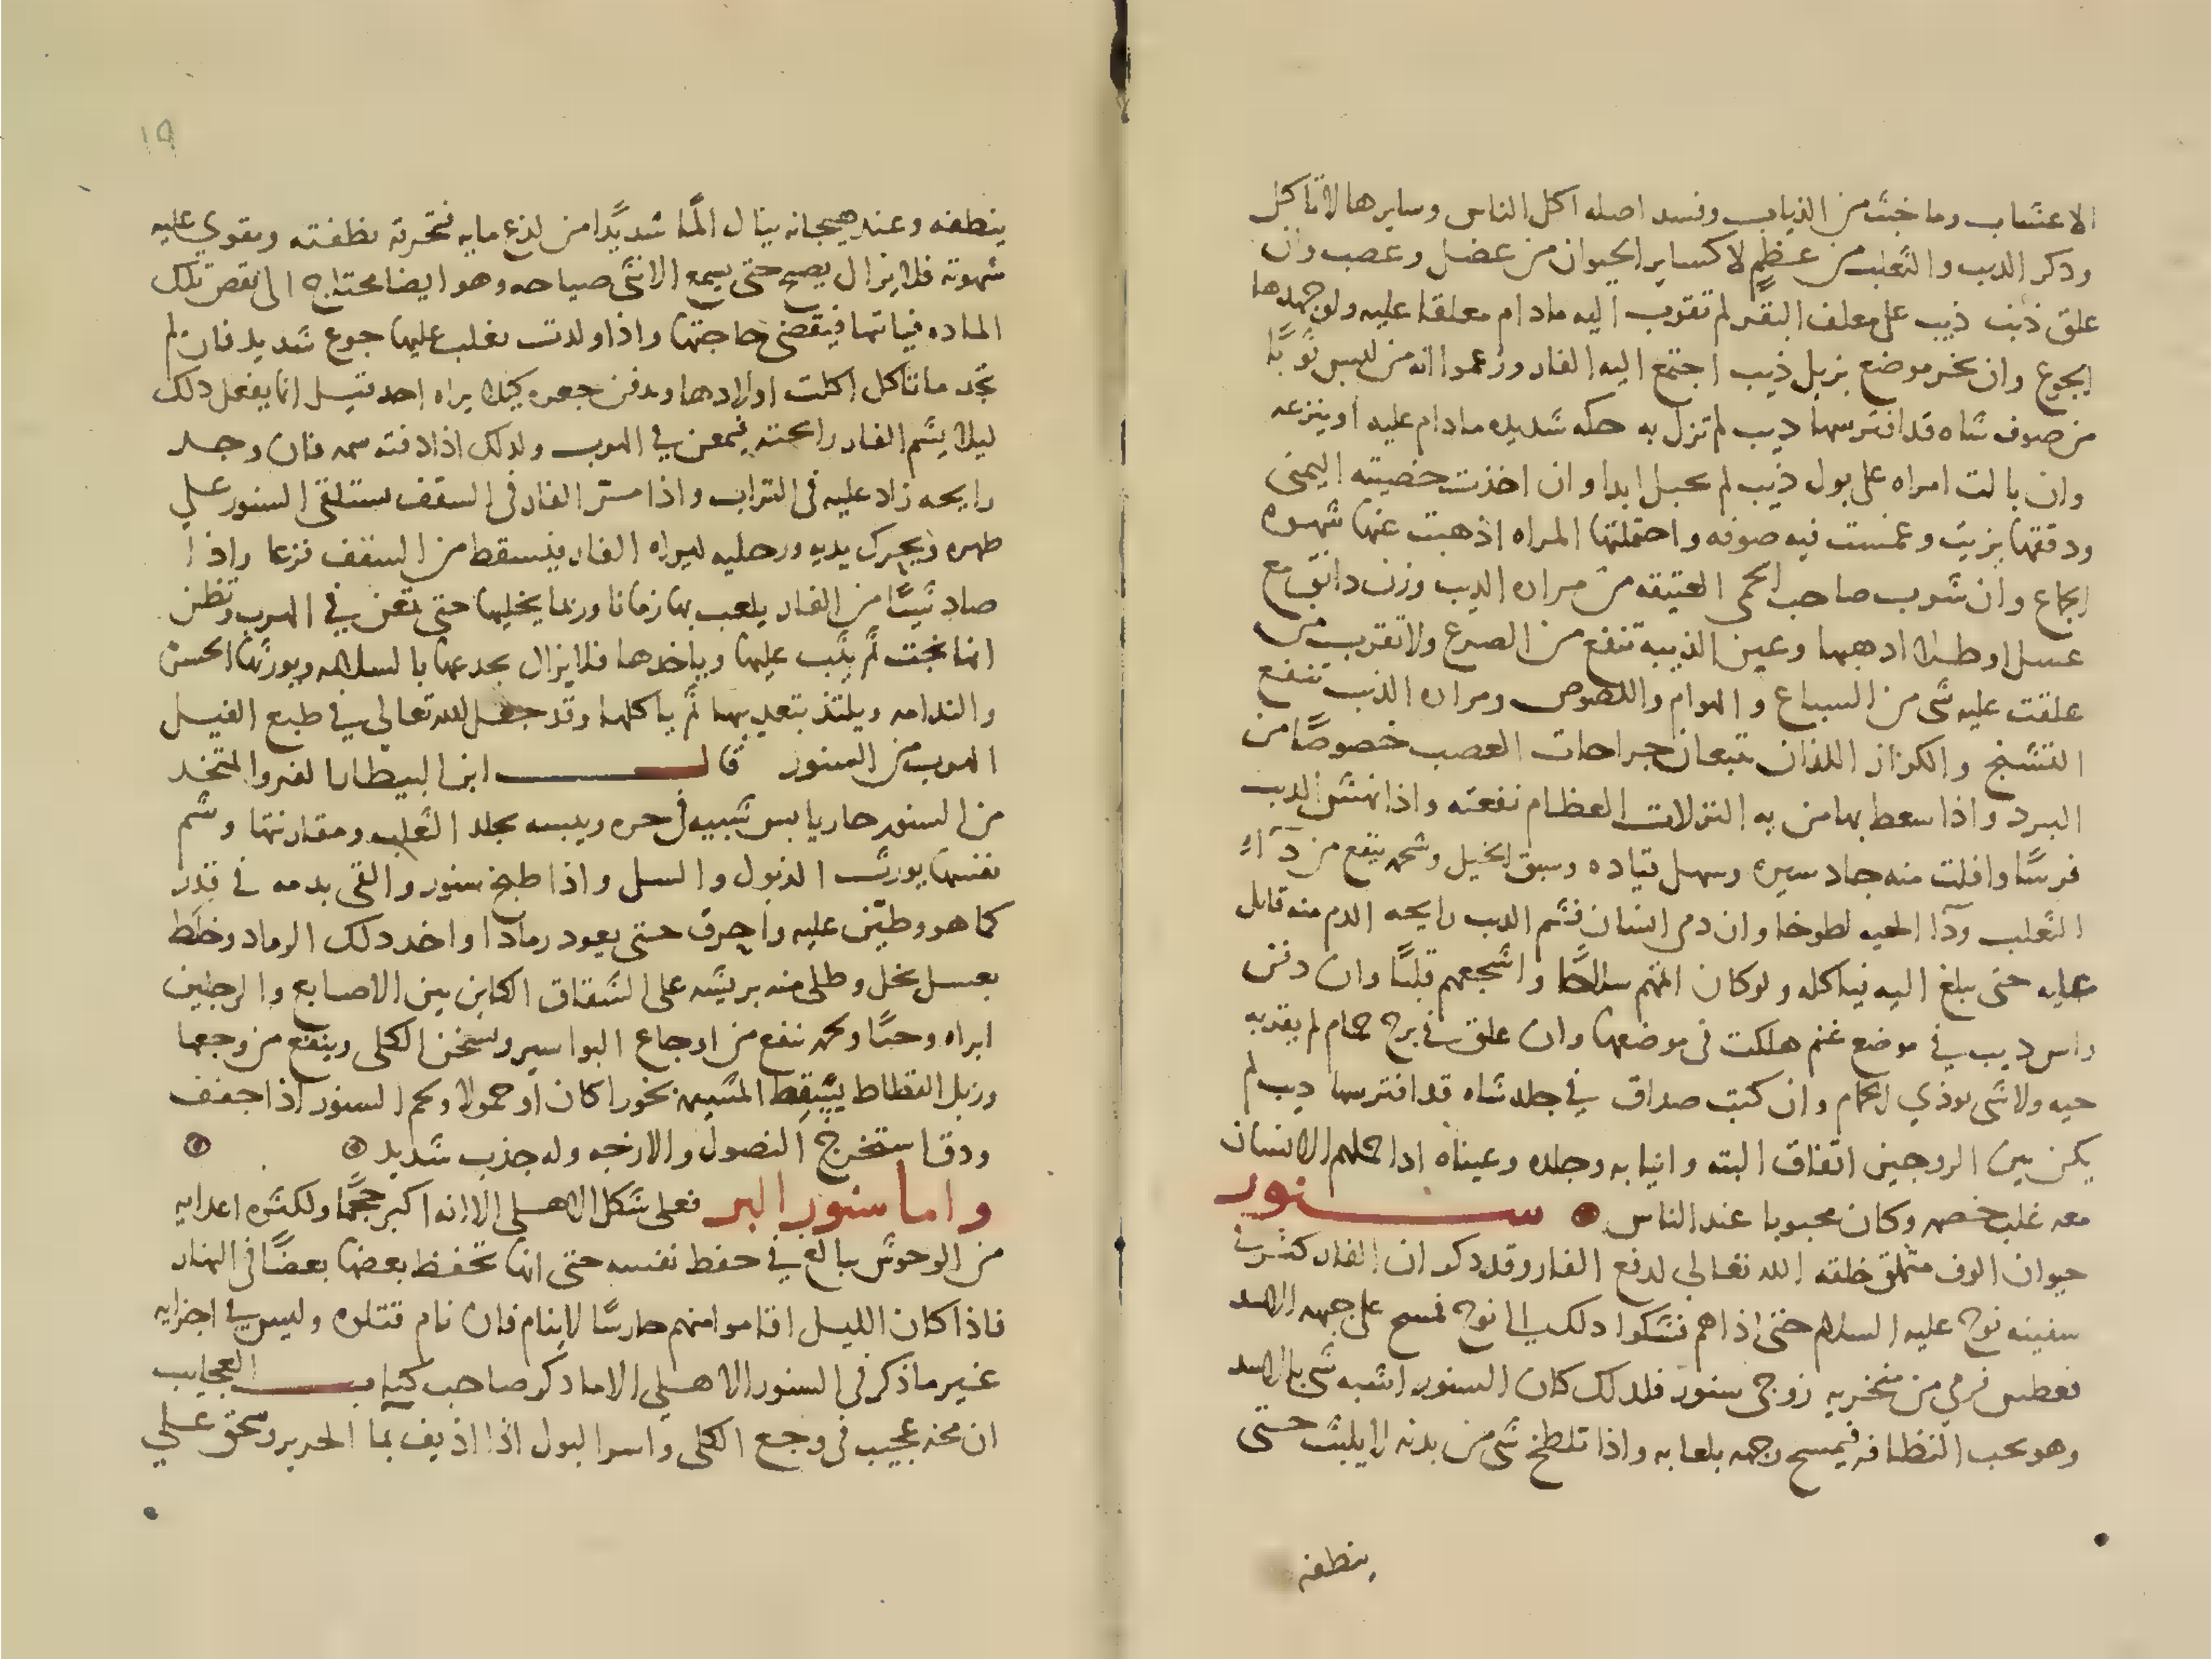 الاعشاب وما خبث من الذياب وفسد اصله اكل الناس وسايرها لا تاكل
وذكر الديب والثعلب من عظم لا كساير الحيوان من عضل وعصب وان
علق ذنب ذيب على معلف البقر لم تقرب اليه مادام معلقا عليه ولو جهدها
الجوع وان بخر موضع بزبل ذيب اجتمع اليه الفار وزعموا انه من لبس ثوبا
من صوف شاه قد افترسها ديب لم تزل به حكه شديده مادام عليه او ينزعه
وان بالت امراه على بول ذيب لم تحبل ابدا وان اخذت خصيته اليمنى
ودققتها بزيت وغمست فيه صوفه واحتملتها المراه اذهبت عنها شهوه
الجماع وان شرب صاحب الحمى العتيقه من مراره الديب وزن دانق مع
عسل او طلا ادهبها وعين الذيبه تنفع من الصرع ولا تقرب من
علقت عليه شى من السباع والهوام واللصوص ومراره الذيب تنفع
التشنج والكزاز اللذان يتبعان جراحات العصب خصوصًا من
البرد واذا سعط بها من به النزلات العظام نفعته واذا نهش الديب
فرسًا وافلت منه جاد سيره وسهل قياده وسبق الخيل وشحمه ينفع من دآء
الثعلب ودآ الحيه لطوخا وان دمى انسان فشم الديب رايحه الدم منه قاتل
عليه حتى يبلغ اليه فياكله ولو كان اتمهم سلاحًا واشجعهم قلبًا وان دفن
راس ديب في موضع غنم هلكت فى موضعها وان علق في برج حمام لم يقربه
حيه ولا شى يوذي الحمام وان كتب صداق في جلد شاه قد افترسها ديب لم
يكن بين الزوجين اتفاق البته وانيابه وجلده وعيناه ادا حملهم الانسان
معه غلب خصمه وكان محبوبا عند الناس سنور
حيوان الوف متملق خلقه الله تعالى لدفع الفار وقد ذكر ان الفار كثر في
سفينه نوح عليه السلام حتى اذاهم فشكوا دلك الى نوح فمسح على جبهه الاسد
فعطس فرمى من منخريه زوجى سنور فلدلك كان السنور اشبه شى بالاسد
وهو يحب النظافه فيمسح وجهه بلعابه واذا تلطخ شى من بدنه لا يلبث حتى
ينظفه
١٩
ينظفه وعند هيجانه ينال المًا شديدًا من لذع مايه فتحرقه نظفته وتقوي عليه
شهوته فلا يزال يصيح حتى يسمع الانثى صياحه وهو ايضا محتاج الى نقص تلك
الماده فياتها فيقضي حاجتها واذا ولدت يغلب عليها جوع شديد فان لم
تجد ما تاكل اكلت اولادها ويدفن جعره كيلا يراه احد قيل انما يفعل دلك
ليلا يشم الفار رايحته فيمعن في الهرب ولدلك اذا دفنه شمه فان وجد
رايحه زاد عليه فى التراب واذا مشى الفار فى السقف ستلقى السنور على
ظهره ويحرك يديه ورجليه ليراه الفار فيسقط من السقف فزعا واذا
صاد شيئًا من الفار يلعب بها زمانا وربما يخليها حتى تمعن في الهرب وتظن
انها نجت ثم يثب عليها وياخدها فلا يزال يخدعها بالسلامه ويورثها الحسره
والندامه ويلتذ بتعديبها ثم ياكلها وقد جعل الله تعالى في طبع الفيل
الهرب من السنور قال ابن البيطار الفرو المتخد
من السنور حار يابس شبيه فى حره ويبسه بجلد الثعلب ومقارنتها وشم
نفسها يورث الذبول والسل واذا طبخ سنور والقى بدمه في قدر
كما هو وطين عليه واحرق حتى يعود رمادا واخد دلك الرماد وخلط
بعسل نحل وطلى منه بريشه على الشقاق الكاين بين الاصابع والرجلين
ابراه وحيًا ولحمه ينفع من اوجاع البواسير ويسخن الكلى وينفع من وجعها
وزبل القطاط يسقط المشيمه بخورا كان او حمولا ولحم السنور اذا جفف
ودق استخرج النصول والازجه وله جذب شديد
واما سنور البر فعلى شكل الاهلى الا انه اكبر حجمًا ولكثره اعدايه
من الوحوش يبالغ في حفظ نفسه حتى انها تحفظ بعضها بعضًا فى النهار
فاذا كان الليل اقاموا منهم حارسًا لا ينام فان نام قتلوه وليس في اجزايه
غير ما ذكر فى السنور الاهلي الا ما دكر صاحب كتاب العجايب
ان مخه عجيب فى وجع الكلى واسر البول اذا اذيف بمآ الجرير وسخن على